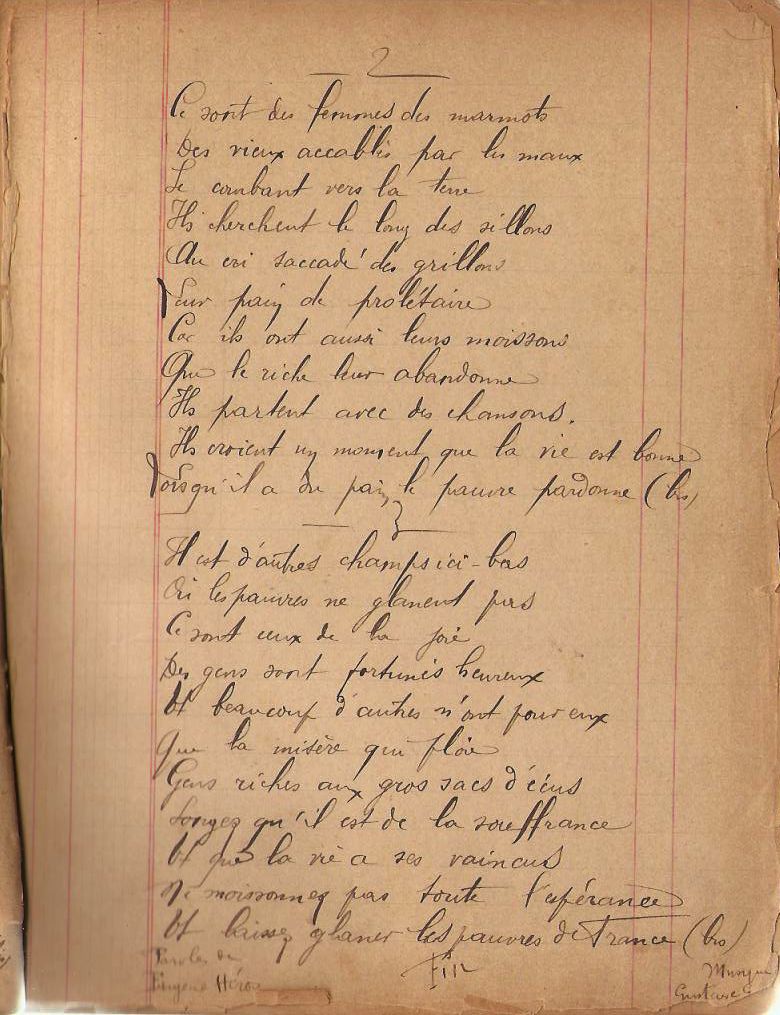 2
Ce sont des femmes des marmots
Des vieux accablés par les maux
Se courbant vers la terre
Ils cherchent le long des sillons
Au cri saccadé des grillons
Leur pain de prolétaire
Car ils ont aussi leurs moissons
Que le riche leur abandonne
Ils partent avec des chansons.
Ils croient un moment que la vie est bonne
Lorsqu'il a du pain, le pauvre pardonne (bis)
3
Il est d'autres champs ici-bas
Où les pauvres ne glanent pas
Ce sont ceux de la joie
Des gens sont fortunés heureux
Et beaucoup d'autres n'ont pour eux
Que la misère qui ploie
Gens riches aux gros sacs d'écus
Songez qu'il est de la souffrance
Et que la vie a ses vaincus
Ne moissonnez pas toute l'espérance
Et laissez glaner les pauvres de France (bis)
Paroles de
Eugène Héros
Fin
Musique
Gustave